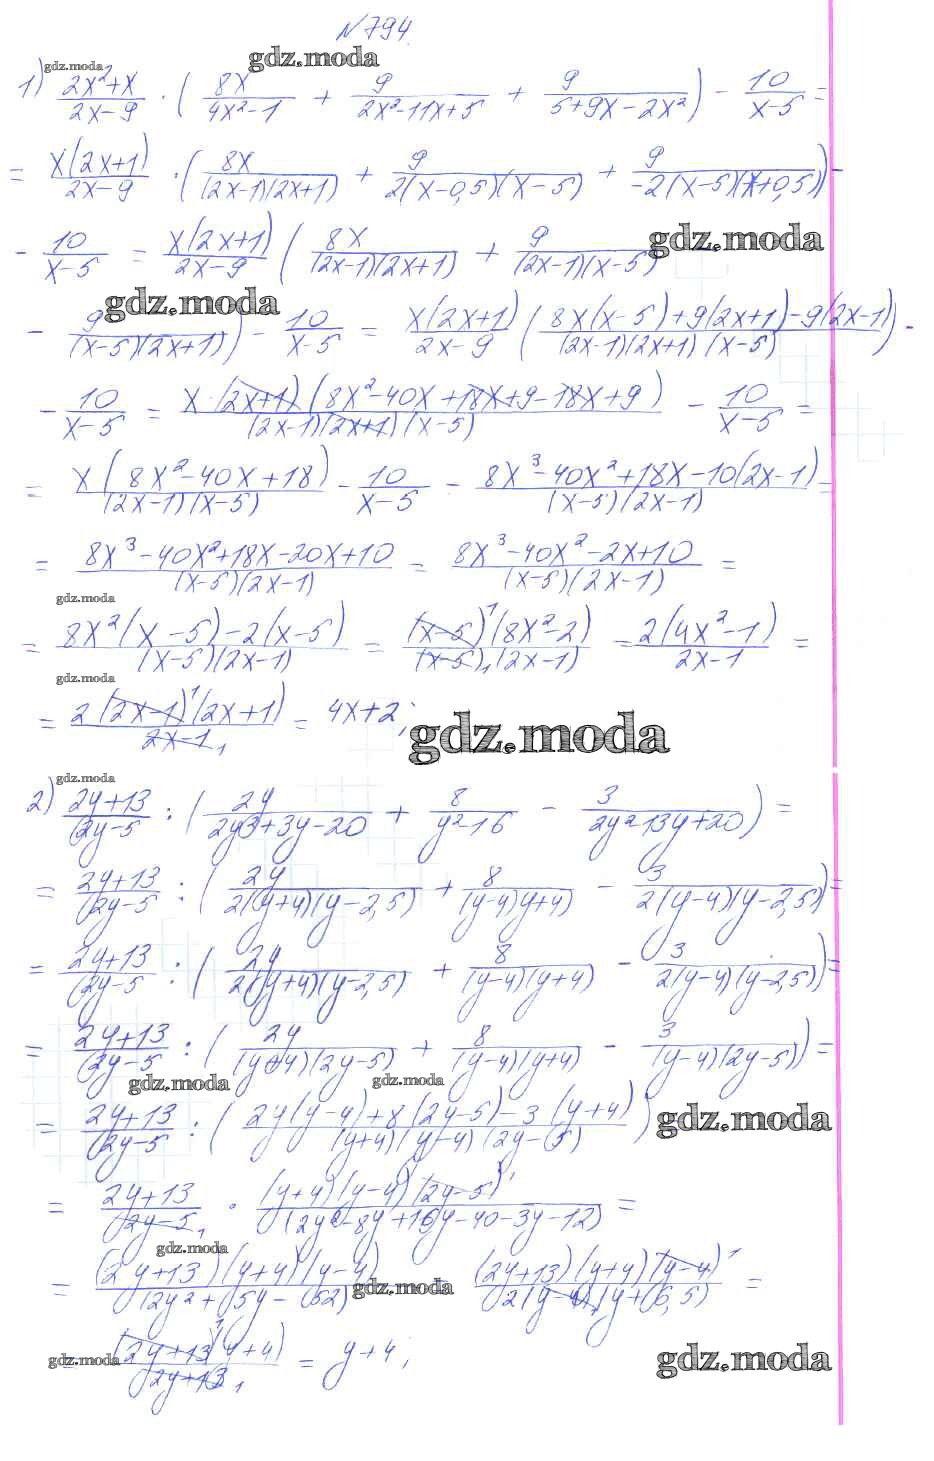 №794
gdz.moda
gdz.moda
1) (2x²+x)/(2x-9) · (8x/(4x²-1) + 9/(2x²-11x+5) + 9/(5+9x-2x²)) - 10/(x-5) =
= x(2x+1)/(2x-9) · (8x/((2x-1)(2x+1)) + 9/(2(x-0,5)(x-5)) + 9/(-2(x-5)(x+0,5))) -
- 10/(x-5) = x(2x+1)/(2x-9) (8x/((2x-1)(2x+1)) + 9/((2x-1)(x-5)) gdz.moda
gdz.moda
- 9/((x-5)(2x+1))) - 10/(x-5) = x(2x+1)/(2x-9) ((8x(x-5)+9(2x+1)-9(2x-1))/((2x-1)(2x+1)(x-5))) -
- 10/(x-5) = x·(2x+1)(8x²-40x+18x+9-18x+9)/((2x-1)(2x+1)(x-5)) - 10/(x-5) =
= x(8x²-40x+18)/((2x-1)(x-5)) - 10/(x-5) - (8x³-40x²+18x-10(2x-1))/((x-5)(2x-1)) =
= (8x³-40x²+18x-20x+10)/((x-5)(2x-1)) = (8x³-40x²-2x+10)/((x-5)(2x-1)) =
gdz.moda
= (8x²(x-5)-2(x-5))/((x-5)(2x-1)) = (x-5)¹(8x²-2)/((x-5)₁(2x-1)) = 2(4x²-1)/(2x-1) =
gdz.moda
= 2(2x-1)¹(2x+1)/(2x-1)₁ = 4x+2;
gdz.moda
gdz.moda
2) (2y+13)/(2y-5) : (2y/(2y²+3y-20) + 8/(y²-16) - 3/(2y²-13y+20)) =
= (2y+13)/(2y-5) : (2y/(2(y+4)(y-2,5)) + 8/((y-4)y+4) - 3/(2(y-4)(y-2,5))) =
= (2y+13)/(2y-5) : (2y/(2(y+4)(y-2,5)) + 8/((y-4)(y+4)) - 3/(2(y-4)(y-2,5))) =
= (2y+13)/(2y-5) : (2y/((y+4)(2y-5)) + 8/((y-4)(y+4)) - 3/((y-4)(2y-5))) =
gdz.moda gdz.moda
= (2y+13)/(2y-5) : ((2y(y-4)+8(2y-5)-3(y+4))/((y+4)(y-4)(2y-5))) gdz.moda
= (2y+13)/(2y-5)₁ · (y+4)(y-4)(2y-5)¹/(2y²-8y+16y-40-3y-12) =
gdz.moda
= (2y+13)(y+4)(y-4)/(2y²+5y-52) gdz.moda (2y+13)(y+4)(y-4)¹/(2(y-4)₁(y+6,5)) =
gdz.moda (2y+13)¹(y+4)/(2y+13)₁ = y+4;
gdz.moda